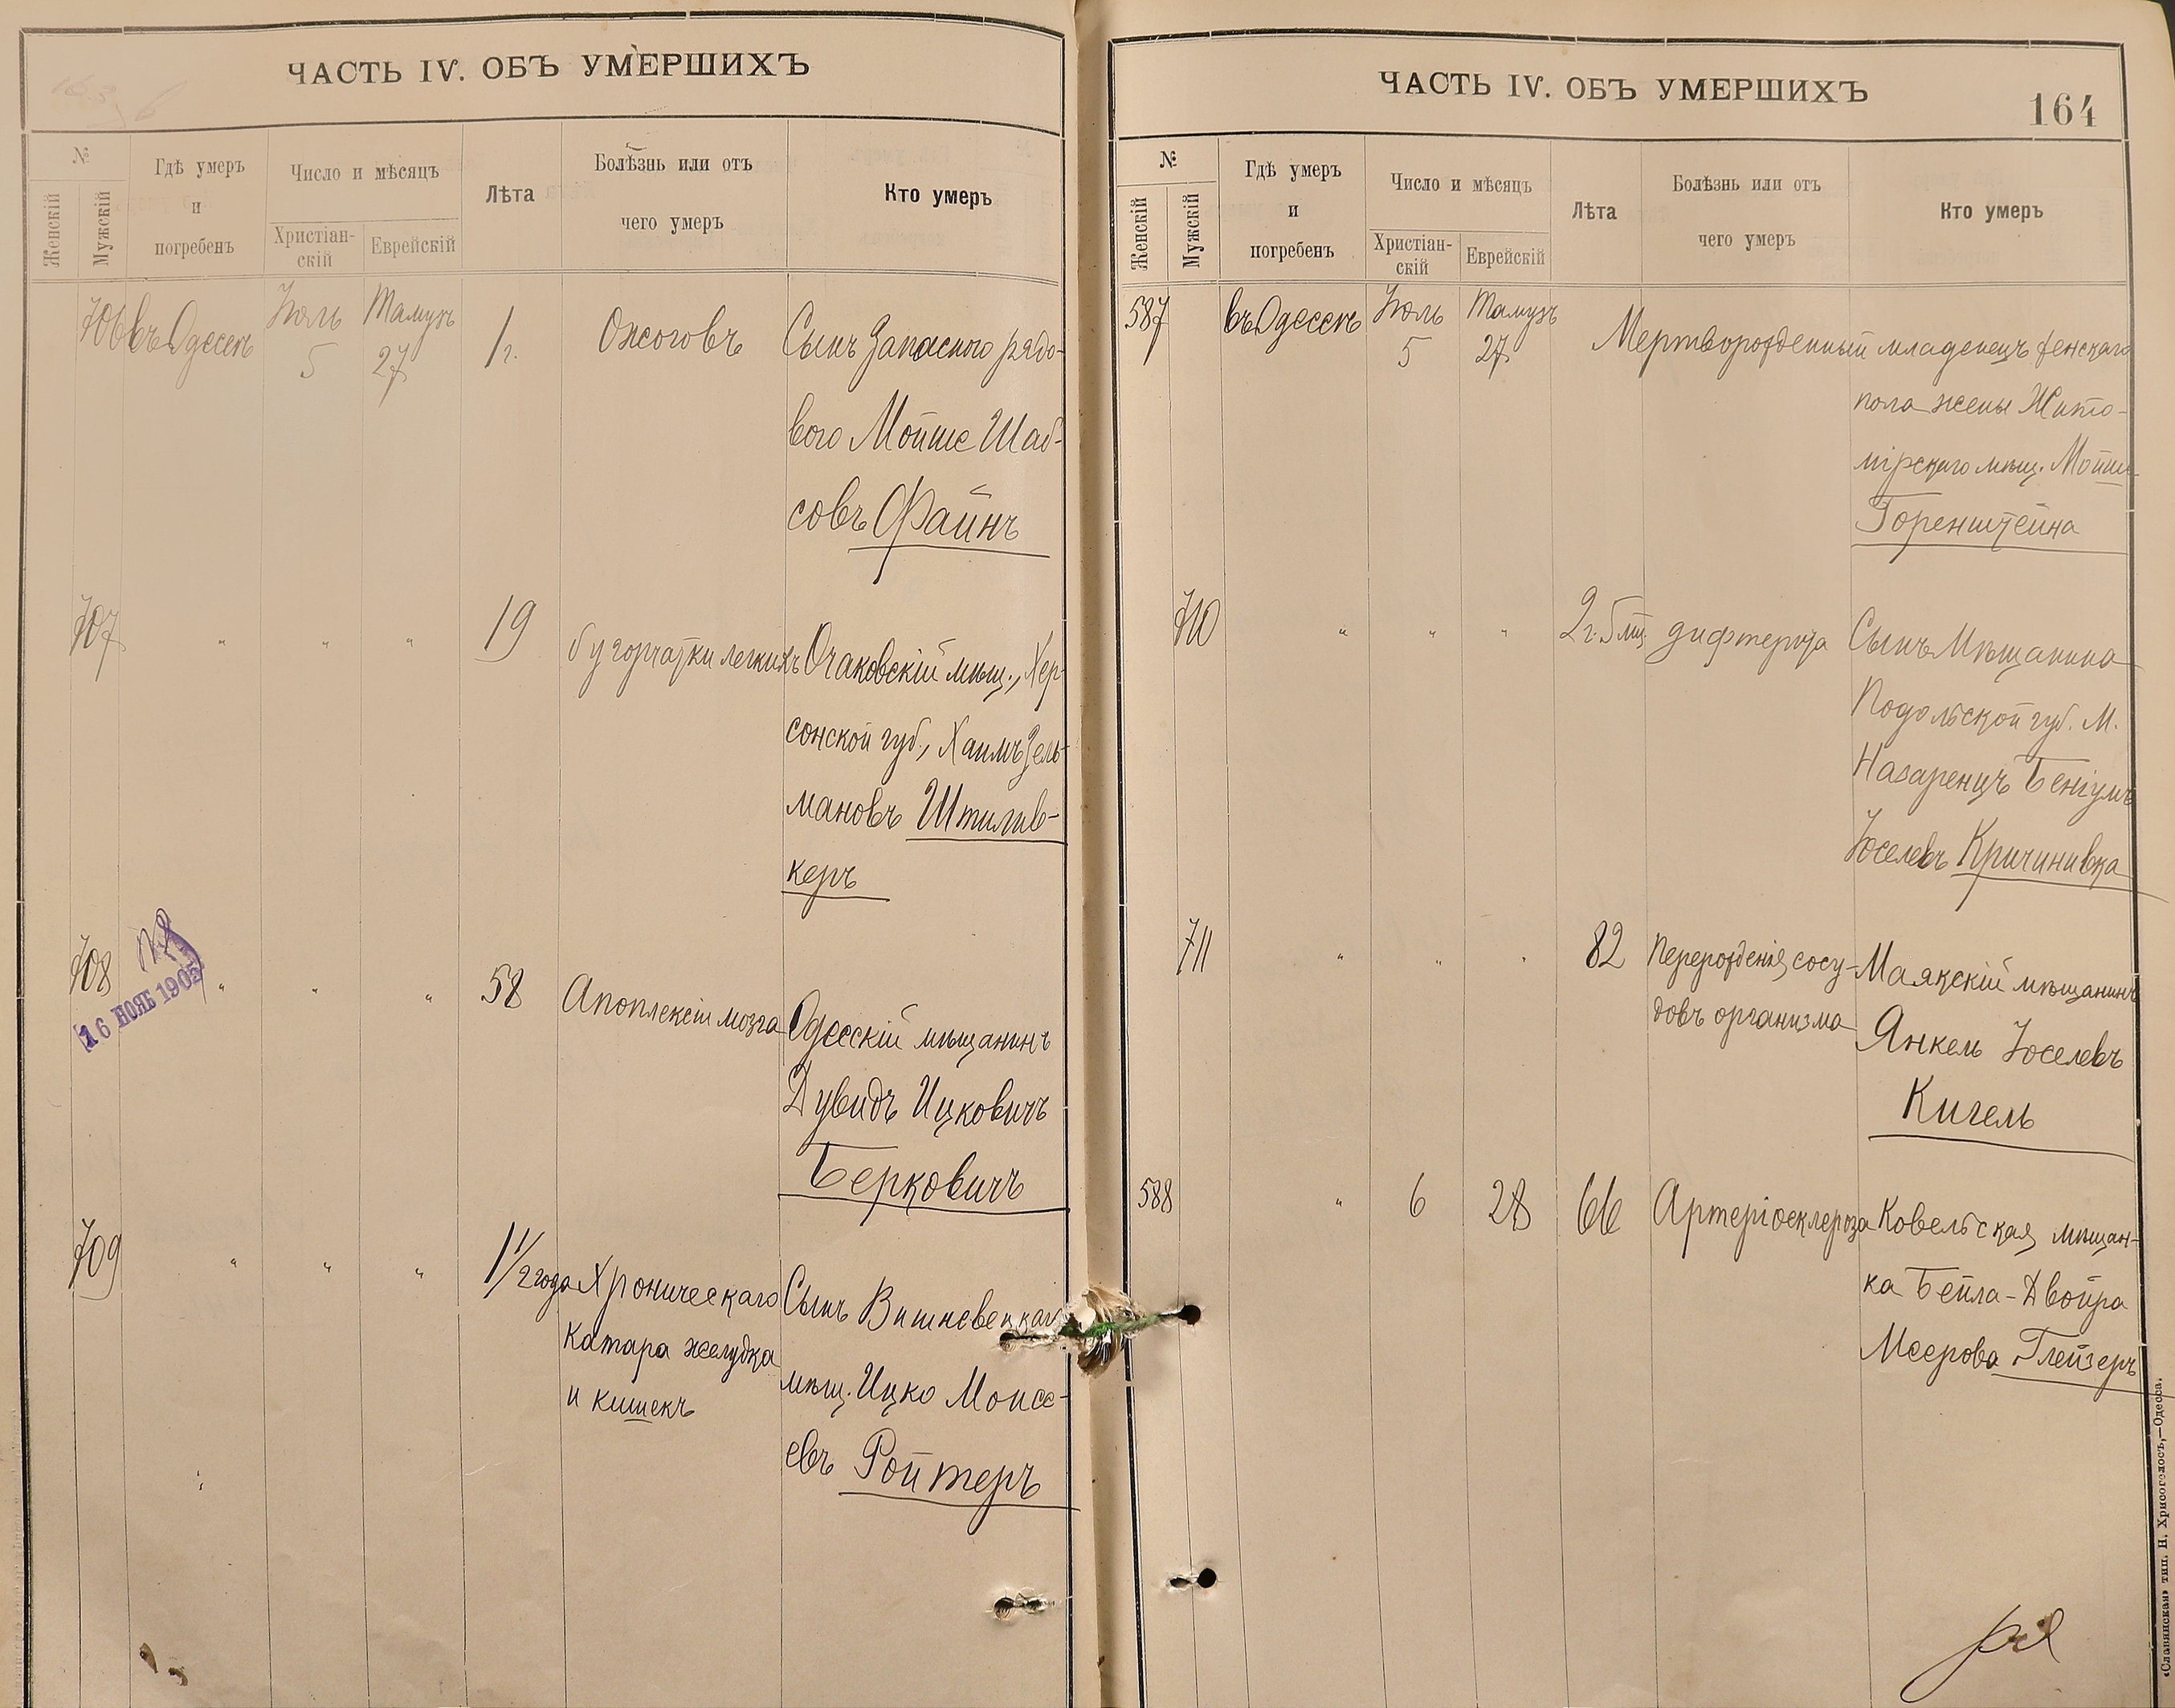 ЧАСТЬ IV. ОБЪ УМЕРШИХЪ
№
Женскій
Мужскій
Гдѣ умеръ
и
погребенъ
Число и мѣсяцъ
Христіан-
скій
Еврейскій
Лѣта
Болѣзнь или отъ
чего умеръ
Кто умеръ
706 въ Одессѣ Іюль Тамузъ 1 г. Ожоговъ Сынъ Запасного рядо-
5 27
вого Мойше Шаб-
совъ Файнъ
707 " " " 19 бугорчатки легкихъ Очаковскій мѣщ., Хер-
сонской губ., Хаимъ Зель-
мановъ Штилив-
керъ
708 " " " 58 Апоплексіи мозга Одесскій мѣщанинъ
16 НОЯБ 190
Дувидъ Ицковичъ
Берковичъ
709 " " " 1 1/2 года Хроническаго Сынъ Вишневецкаго
катара желудка
мѣщ. Ицко Моисе-
и кишекъ
евъ Ройтеръ
ЧАСТЬ IV. ОБЪ УМЕРШИХЪ
164
№
Женскій
Мужскій
Гдѣ умеръ
и
погребенъ
Число и мѣсяцъ
Христіан-
скій
Еврейскій
Лѣта
Болѣзнь или отъ
чего умеръ
Кто умеръ
587 въ Одессѣ Іюль Тамузъ Мертворожденный младенецъ женскаго
5 27
пола жены Жито-
мірскаго мѣщ. Мойше
Горенштейна
710 " " " 2 г. 5 мц. дифтерита Сынъ Мѣщанина
Подольской губ. М.
Назаренцъ
Іоселевъ Кричинивка
711 " " " 82 Перерожденія сосу- Маякскій мѣщанинъ
довъ организма
Янкель Іоселевъ
Кигель
588 " 6 28 66 Артеріосклероза Ковельская мѣщан-
ка Бейла-Двойра
Меерова Глейзеръ
«Славянская» тип. Н. Хрисогелосъ,—Одесса.